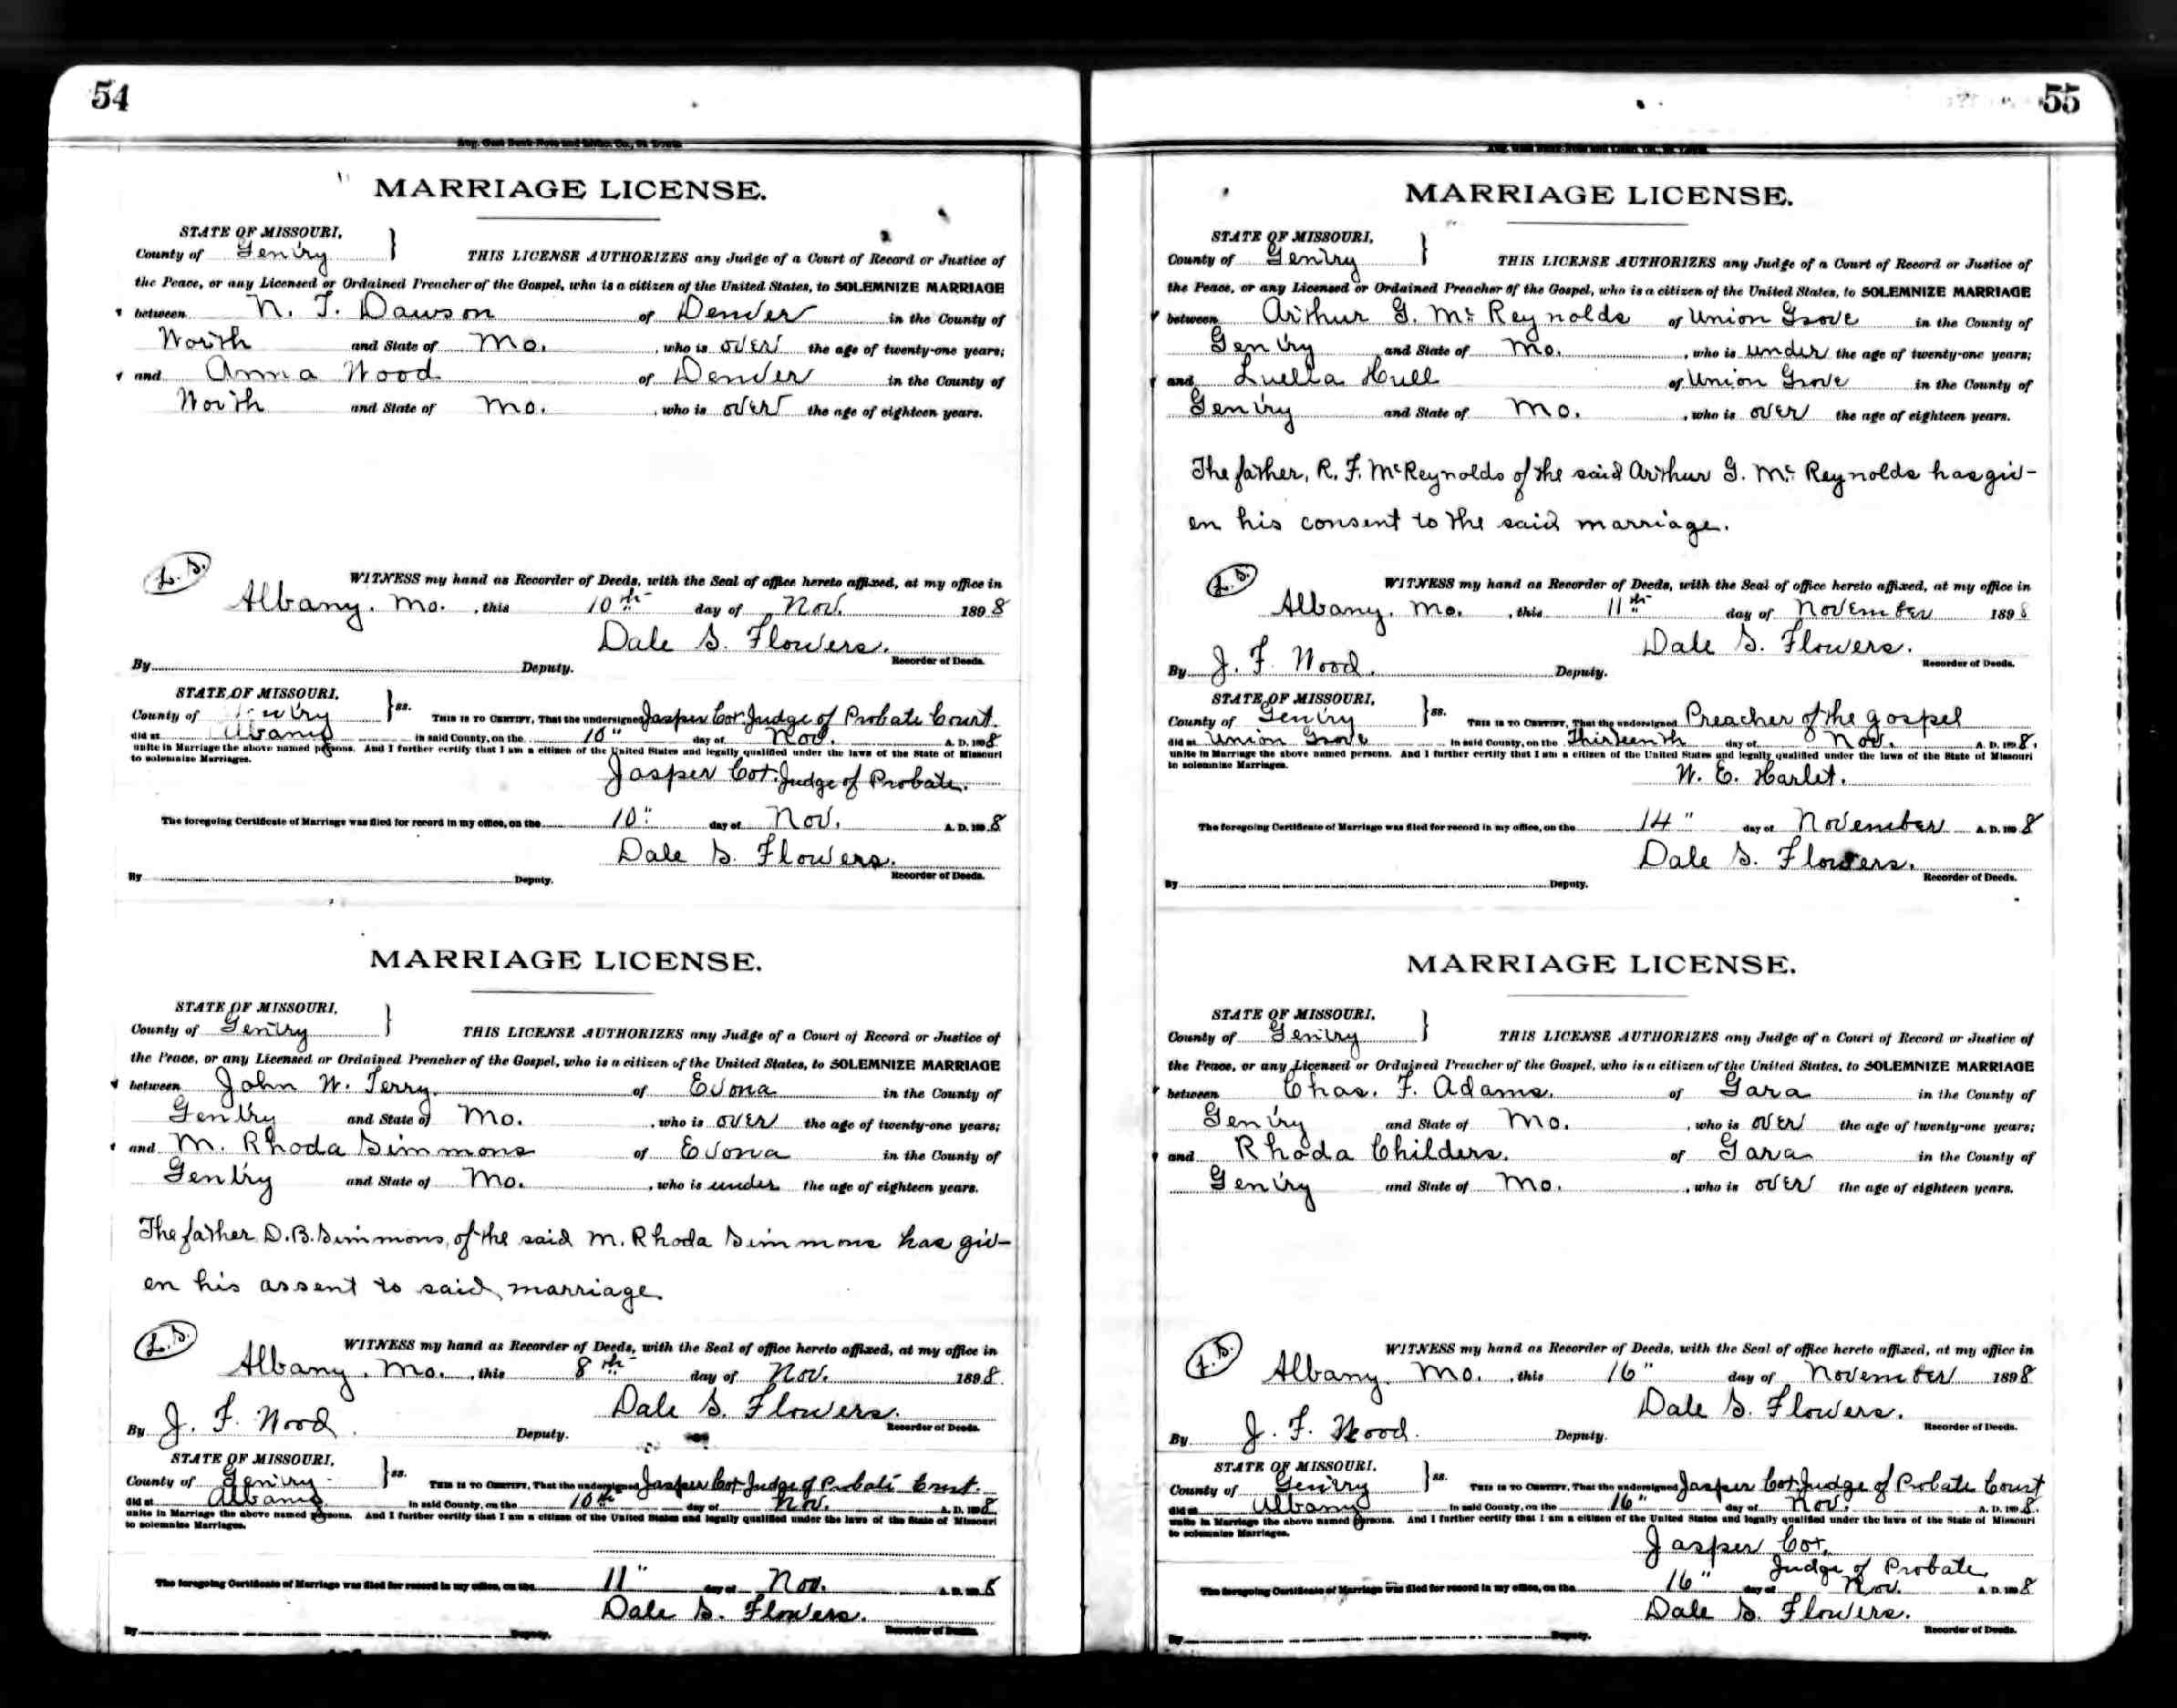 54
Aug. Gast Bank Note and Litho. Co., St. Louis
MARRIAGE LICENSE.
STATE OF MISSOURI,
County of Gentry } THIS LICENSE AUTHORIZES any Judge of a Court of Record or Justice of
the Peace, or any Licensed or Ordained Preacher of the Gospel, who is a citizen of the United States, to SOLEMNIZE MARRIAGE
between N. T. Dawson of Denver in the County of
Worth and State of Mo. , who is over the age of twenty-one years;
and Anna Wood of Denver in the County of
Worth and State of Mo. , who is over the age of eighteen years.
L. S.
WITNESS my hand as Recorder of Deeds, with the Seal of office hereto affixed, at my office in
Albany. Mo. , this 10th day of Nov. 1898
Dale S. Flowers.
By Deputy. Recorder of Deeds.
STATE OF MISSOURI,
County of Gentry } ss. THIS IS TO CERTIFY, That the undersigned Jasper Cox Judge of Probate Court.
did at Albany in said County, on the 10" day of Nov. A. D. 1898
unite in Marriage the above named persons. And I further certify that I am a citizen of the United States and legally qualified under the laws of the State of Missouri
to solemnize Marriages.
Jasper Cox. Judge of Probate.
The foregoing Certificate of Marriage was filed for record in my office, on the 10" day of Nov. A. D. 1898
Dale S. Flowers.
By Deputy. Recorder of Deeds.
MARRIAGE LICENSE.
STATE OF MISSOURI,
County of Gentry } THIS LICENSE AUTHORIZES any Judge of a Court of Record or Justice of
the Peace, or any Licensed or Ordained Preacher of the Gospel, who is a citizen of the United States, to SOLEMNIZE MARRIAGE
between John W. Terry. of Evona in the County of
Gentry and State of Mo. , who is over the age of twenty-one years;
and M. Rhoda Simmons of Evona in the County of
Gentry and State of Mo. , who is under the age of eighteen years.
The father D. B. Simmons, of the said M. Rhoda Simmons has giv-
en his assent to said marriage.
L. S.
WITNESS my hand as Recorder of Deeds, with the Seal of office hereto affixed, at my office in
Albany, Mo. , this 8th day of Nov. 1898.
Dale S. Flowers.
By J. F. Wood Deputy. Recorder of Deeds.
STATE OF MISSOURI,
County of Gentry } ss. THIS IS TO CERTIFY, That the undersigned Jasper Cox Judge of Probate Court.
did at Albany in said County, on the 10th day of Nov. A. D. 1898
unite in Marriage the above named persons. And I further certify that I am a citizen of the United States and legally qualified under the laws of the State of Missouri
to solemnize Marriages.
The foregoing Certificate of Marriage was filed for record in my office, on the 11" day of Nov. A. D. 1898
Dale S. Flowers.
By Deputy. Recorder of Deeds.
55
MARRIAGE LICENSE.
STATE OF MISSOURI,
County of Gentry } THIS LICENSE AUTHORIZES any Judge of a Court of Record or Justice of
the Peace, or any Licensed or Ordained Preacher of the Gospel, who is a citizen of the United States, to SOLEMNIZE MARRIAGE
between Arthur G. McReynolds of Union Grove in the County of
Gentry and State of Mo. , who is under the age of twenty-one years;
and Luella Hull of Union Grove in the County of
Gentry and State of Mo. , who is over the age of eighteen years.
The father, R. F. McReynolds of the said Arthur G. McReynolds has giv-
en his consent to the said marriage.
L. S.
WITNESS my hand as Recorder of Deeds, with the Seal of office hereto affixed, at my office in
Albany. Mo. , this 11th day of November 1898
Dale S. Flowers.
By J. F. Wood. Deputy. Recorder of Deeds.
STATE OF MISSOURI,
County of Gentry } ss. THIS IS TO CERTIFY, That the undersigned Preacher of the gospel
did at Union Grove in said County, on the Thirteenth day of Nov. A. D. 1898.
unite in Marriage the above named persons. And I further certify that I am a citizen of the United States and legally qualified under the laws of the State of Missouri
to solemnize Marriages.
W. E. Harlet.
The foregoing Certificate of Marriage was filed for record in my office, on the 14" day of November A. D. 1898
Dale S. Flowers.
By Deputy. Recorder of Deeds.
MARRIAGE LICENSE.
STATE OF MISSOURI,
County of Gentry } THIS LICENSE AUTHORIZES any Judge of a Court of Record or Justice of
the Peace, or any Licensed or Ordained Preacher of the Gospel, who is a citizen of the United States, to SOLEMNIZE MARRIAGE
between Chas. F. Adams. of Gara in the County of
Gentry and State of Mo. , who is over the age of twenty-one years;
and Rhoda Childers. of Gara in the County of
Gentry and State of Mo. , who is over the age of eighteen years.
L. S.
WITNESS my hand as Recorder of Deeds, with the Seal of office hereto affixed, at my office in
Albany. Mo. , this 16" day of November 1898
Dale S. Flowers.
By J. F. Wood. Deputy. Recorder of Deeds.
STATE OF MISSOURI,
County of Gentry } ss. THIS IS TO CERTIFY, That the undersigned Jasper Cox Judge of Probate Court
did at Albany in said County, on the 16" day of Nov. A. D. 1898.
unite in Marriage the above named persons. And I further certify that I am a citizen of the United States and legally qualified under the laws of the State of Missouri
to solemnize Marriages.
Jasper Cox.
Judge of Probate
The foregoing Certificate of Marriage was filed for record in my office, on the 16" day of Nov. A. D. 1898
Dale S. Flowers.
By Deputy. Recorder of Deeds.